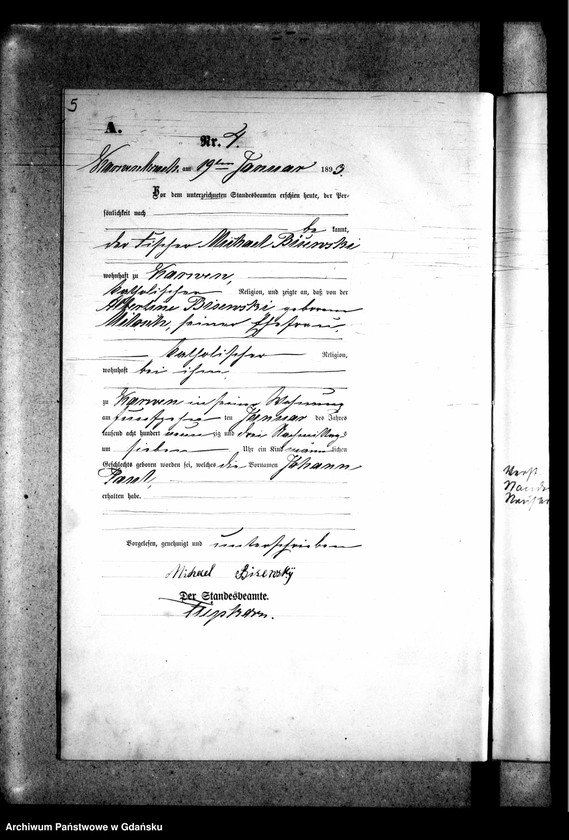 5
A.
Nr. 4.
am 19ten Januar 1893.
Vor dem unterzeichneten Standesbeamten erschien heute, der Per-
sönlichkeit nach
be kannt,
der Fischer Michael Bisewski
wohnhaft zu Karwen,
katholischer Religion, und zeigte an, daß von der
Albertine Bisewski geborenen
seiner Ehefrau
katholischer Religion,
wohnhaft bei ihm
zu Karwen in seiner Wohnung
am fünfzehnten Januar des Jahres
tausend acht hundert neun zig und drei Nachmittags
um sieben Uhr ein Kind männlichen
Geschlechts geboren worden sei, welches die Vornamen Johann
Paul,
erhalten habe.
Vorgelesen, genehmigt und unterschrieben
Michael Bisewsky
Der Standesbeamte.
Archiwum Państwowe w Gdańsku